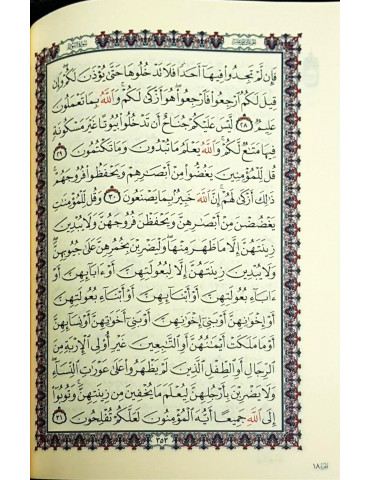 الجزء الثامن عشر
سورة النور
فَإِن لَّمْ تَجِدُوا۟ فِيهَآ أَحَدًا فَلَا تَدْخُلُوهَا حَتَّىٰ يُؤْذَنَ لَكُمْ ۖ وَإِن
قِيلَ لَكُمُ ٱرْجِعُوا۟ فَٱرْجِعُوا۟ ۖ هُوَ أَزْكَىٰ لَكُمْ ۚ وَٱللَّهُ بِمَا تَعْمَلُونَ
عَلِيمٌ ٢٨ لَّيْسَ عَلَيْكُمْ جُنَاحٌ أَن تَدْخُلُوا۟ بُيُوتًا غَيْرَ مَسْكُونَةٍ
فِيهَا مَتَـٰعٌ لَّكُمْ ۚ وَٱللَّهُ يَعْلَمُ مَا تُبْدُونَ وَمَا تَكْتُمُونَ ٢٩
قُل لِّلْمُؤْمِنِينَ يَغُضُّوا۟ مِنْ أَبْصَـٰرِهِمْ وَيَحْفَظُوا۟ فُرُوجَهُمْ ۚ
ذَٰلِكَ أَزْكَىٰ لَهُمْ ۗ إِنَّ ٱللَّهَ خَبِيرٌۢ بِمَا يَصْنَعُونَ ٣٠ وَقُل لِّلْمُؤْمِنَـٰتِ
يَغْضُضْنَ مِنْ أَبْصَـٰرِهِنَّ وَيَحْفَظْنَ فُرُوجَهُنَّ وَلَا يُبْدِينَ
زِينَتَهُنَّ إِلَّا مَا ظَهَرَ مِنْهَا ۖ وَلْيَضْرِبْنَ بِخُمُرِهِنَّ عَلَىٰ جُيُوبِهِنَّ ۖ
وَلَا يُبْدِينَ زِينَتَهُنَّ إِلَّا لِبُعُولَتِهِنَّ أَوْ ءَابَآئِهِنَّ أَوْ
ءَابَآءِ بُعُولَتِهِنَّ أَوْ أَبْنَآئِهِنَّ أَوْ أَبْنَآءِ بُعُولَتِهِنَّ
أَوْ إِخْوَٰنِهِنَّ أَوْ بَنِىٓ إِخْوَٰنِهِنَّ أَوْ بَنِىٓ أَخَوَٰتِهِنَّ أَوْ نِسَآئِهِنَّ
أَوْ مَا مَلَكَتْ أَيْمَـٰنُهُنَّ أَوِ ٱلتَّـٰبِعِينَ غَيْرِ أُو۟لِى ٱلْإِرْبَةِ مِنَ
ٱلرِّجَالِ أَوِ ٱلطِّفْلِ ٱلَّذِينَ لَمْ يَظْهَرُوا۟ عَلَىٰ عَوْرَٰتِ ٱلنِّسَآءِ ۖ
وَلَا يَضْرِبْنَ بِأَرْجُلِهِنَّ لِيُعْلَمَ مَا يُخْفِينَ مِن زِينَتِهِنَّ ۚ وَتُوبُوٓا۟
إِلَى ٱللَّهِ جَمِيعًا أَيُّهَ ٱلْمُؤْمِنُونَ لَعَلَّكُمْ تُفْلِحُونَ ٣١
٣٥٣
الجزء ١٨